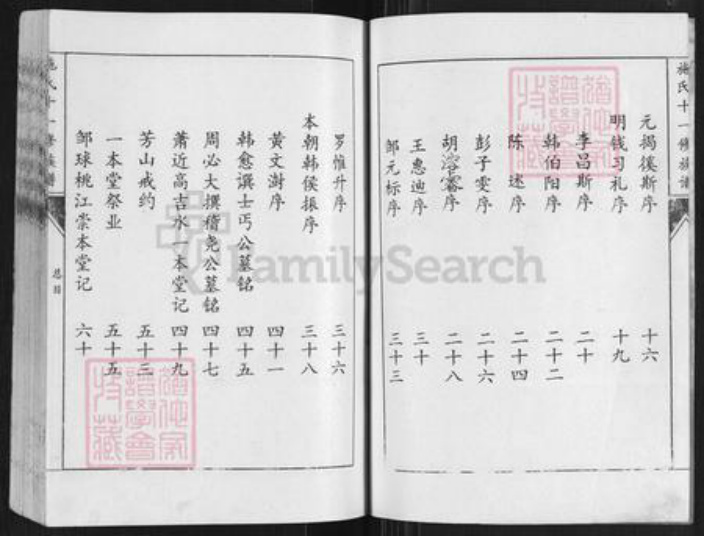 施氏十一修族谱
元揭徯斯序 十六
明钱习礼序 十九
李昌斯序 二十
韩伯阳序 二十二
陈述序 二十四
彭子雯序 二十六
胡濬睿序 二十八
王惠迪序 三十
邹元标序 三十三
罗惟升序 三十六
本朝韩侯振序 三十八
黄文澍序 四十一
韩愈譔士丐公墓铭 四十五
周必大撰偆尧公墓铭 四十七
萧近高吉水一本堂记 四十九
芳山戒约 五十三
一本堂祭业 五十五
邹球桃江崇本堂记 六十
施氏十一修族谱
总目
FamilySearch